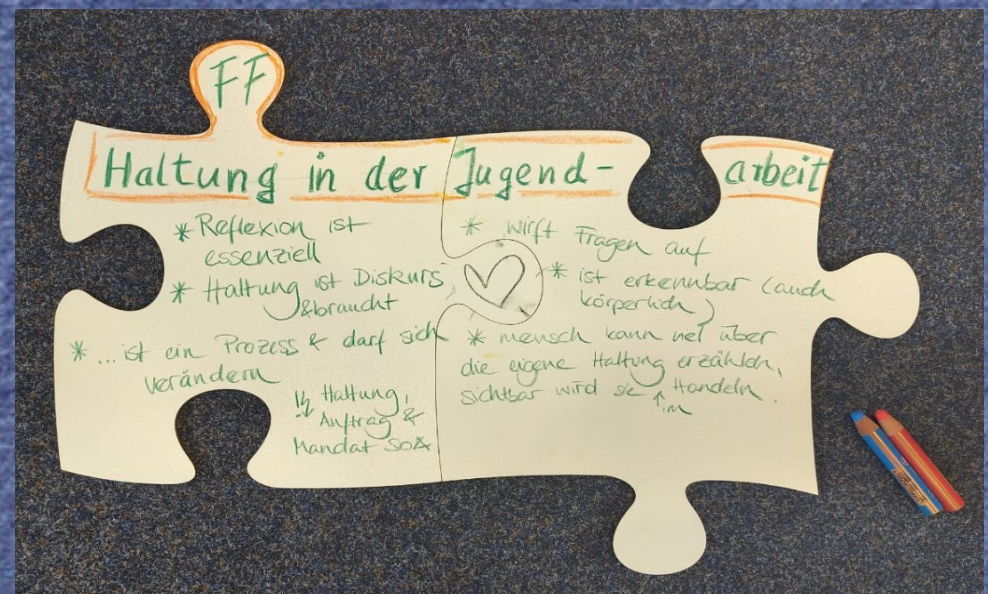 FF
Haltung in der Jugend- arbeit
* Reflexion ist
essenziell
* Haltung ist Diskurs
&braucht
* ... ist ein Prozess & darf sich
verändern
Haltung,
Auftrag &
Mandat SOA
* wirft Fragen auf
* ist erkennbar (auch
körperlich)
* mensch kann viel über
die eigene Haltung erzählen,
sichtbar wird sie ↑ Handeln.
im